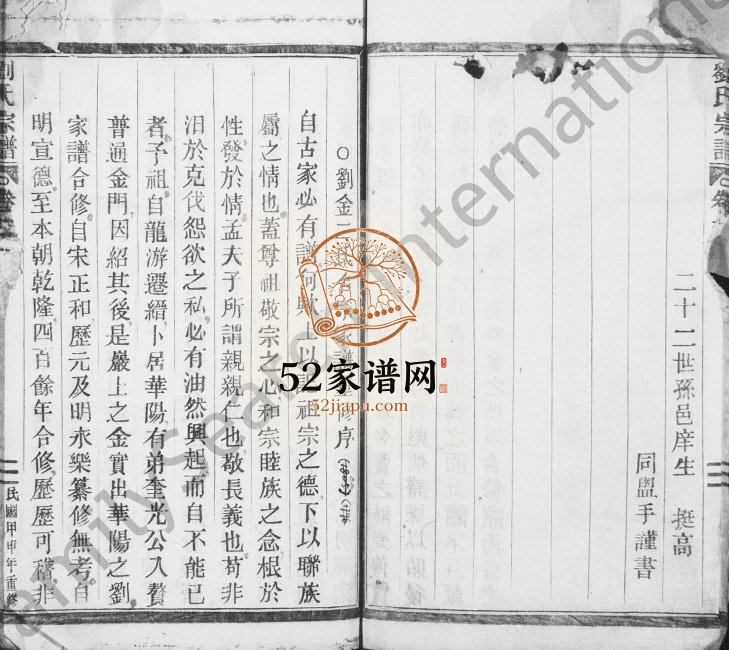 劉氏宗譜
二十二世孫邑庠生 挺高
同盥手謹書
○劉金
修序
自古家必有譜何歟上以 祖宗之德下以聯族
屬之情也蓋尊祖敬宗之心和宗睦族之念根於
性發於情孟夫子所謂親親仁也敬長義也苟非
汨於克伐怨欲之私必有油然興起而自不能已
者予祖自龍游遷縉卜居華陽有弟奎光公入贅
普通金門因紹其後是巖上之金實出華陽之劉
家譜合修自宋正和歷元及明永樂纂修無考自
明宣德至本朝乾隆四百餘年合修歷歷可稽非
劉氏宗譜
民國甲申年重修
52家谱网
52jiapu.com
Family Search International